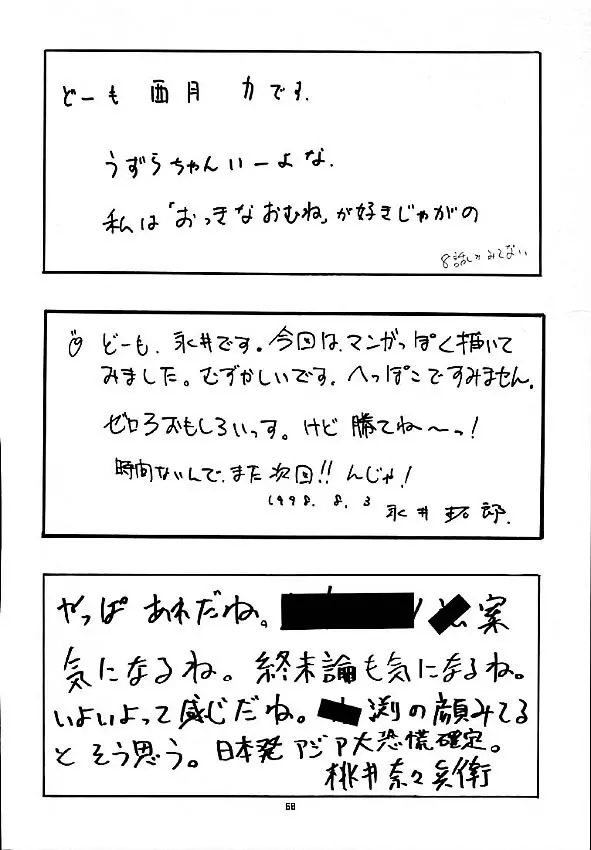 どーも 酉月 力です.
うずらちゃんいーよな.
私は「おっきなおむね」が好きじゃがの
8話しかみてない
どーも、永井です。今回は、マンガっぽく描いて
みました。むずかしいです。へっぽこですみません.
ゼロ3おもしろいっす。けど 勝てね〜っ!
時間ないんで、また次回!!んじゃ!
1998. 8. 3
永井 拓郎.
やっぱ あれだね。案
気になるね。終末論も気になるね。
いよいよって感じだね。渕の顔みてる
とそう思う。日本発アジア大恐慌確定。
桃井奈々兵衛
68